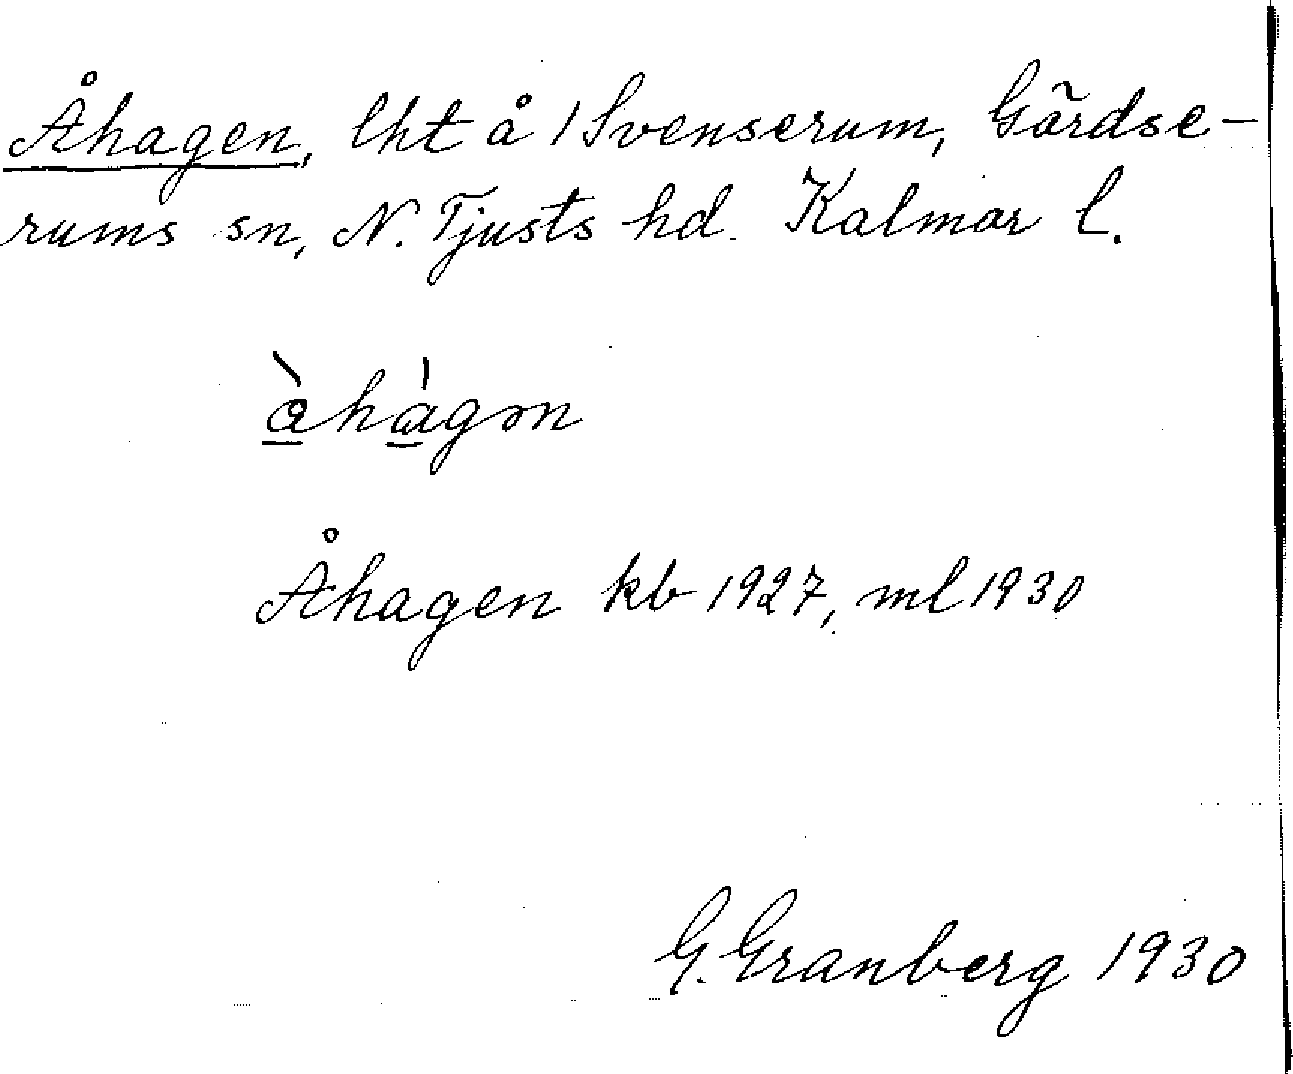 Åhagen, lht å 1 Svenserum, Gärdse-
rums sn, N. Tjusts hd. Kalmar l.
Åhagen kb 1927, ml 1930
G. Granberg 1930